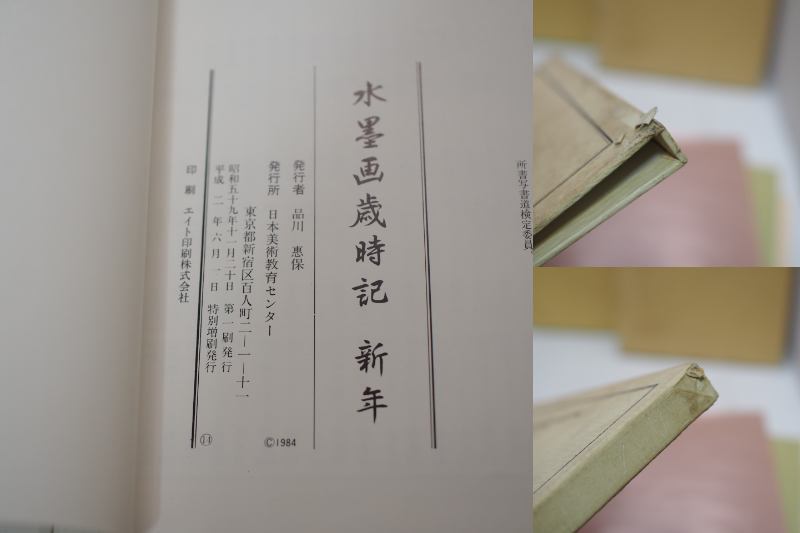 水墨画歳時記 新年
発行者 品川 惠保
発行所 日本美術教育センター
東京都新宿区百人町二―一―十一
昭和五十九年十一月二十日 第一刷発行
平成 二 年 六 月 一 日 特別増刷発行
印刷 エイト印刷株式会社
©1984
⑭
所書写書道検定委員